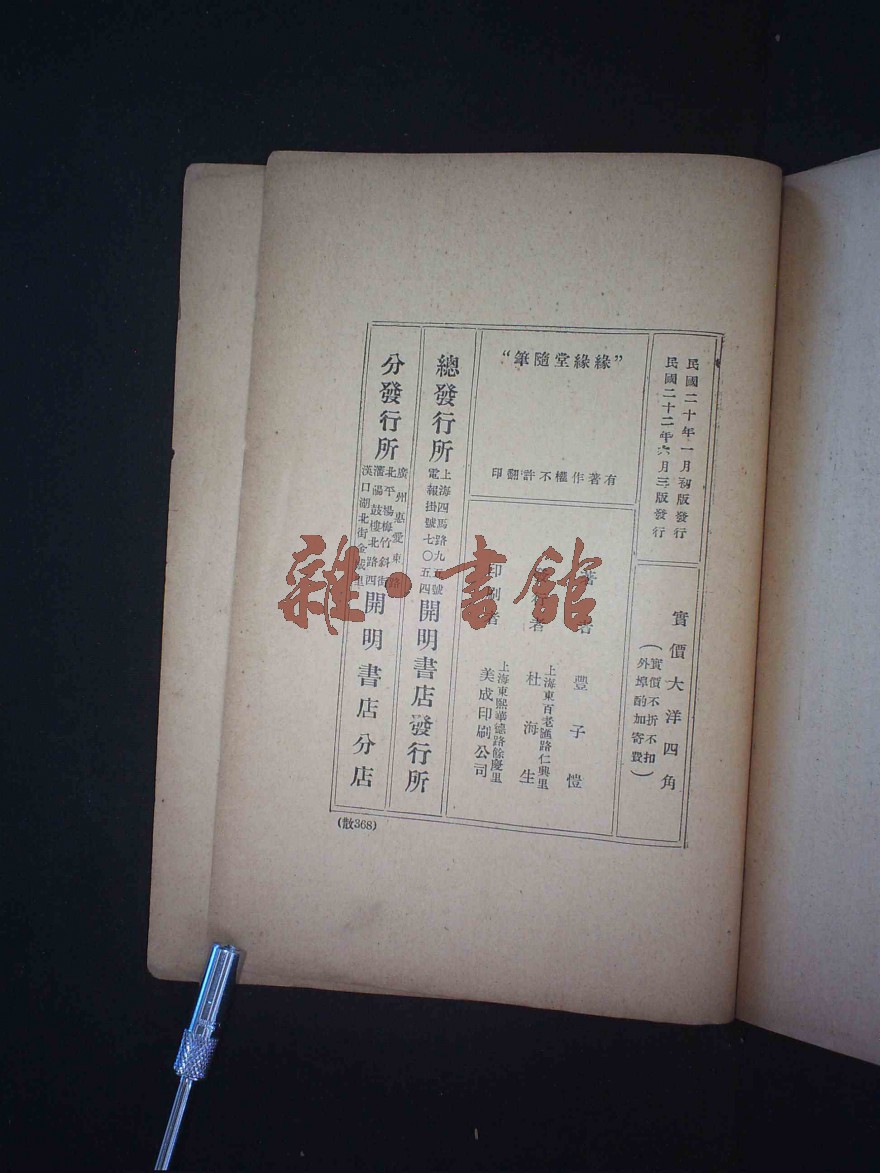 民國二十年一月初版發行
民國二十二年六月三版發行
實價大洋四角
(實價不折不扣
外埠酌加寄費)
“緣緣堂隨筆”
有著作權不許翻印
著者 豐子愷
者 杜海生
上海東百老匯路仁興里
印刷者 美成印刷公司
上海東熙華德路餘慶里
總發行所
上海四馬路九五號
電報掛號七〇五四
開明書店發行所
分發行所
廣州惠愛東路
北平楊梅竹斜街
瀋陽鼓樓北路四
漢口湖北街金城里
開明書店分店
(散368)
雜·書館